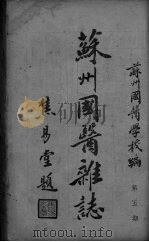 蘇州國醫學校編
蘇州國醫雜誌
第五期
焦易堂題